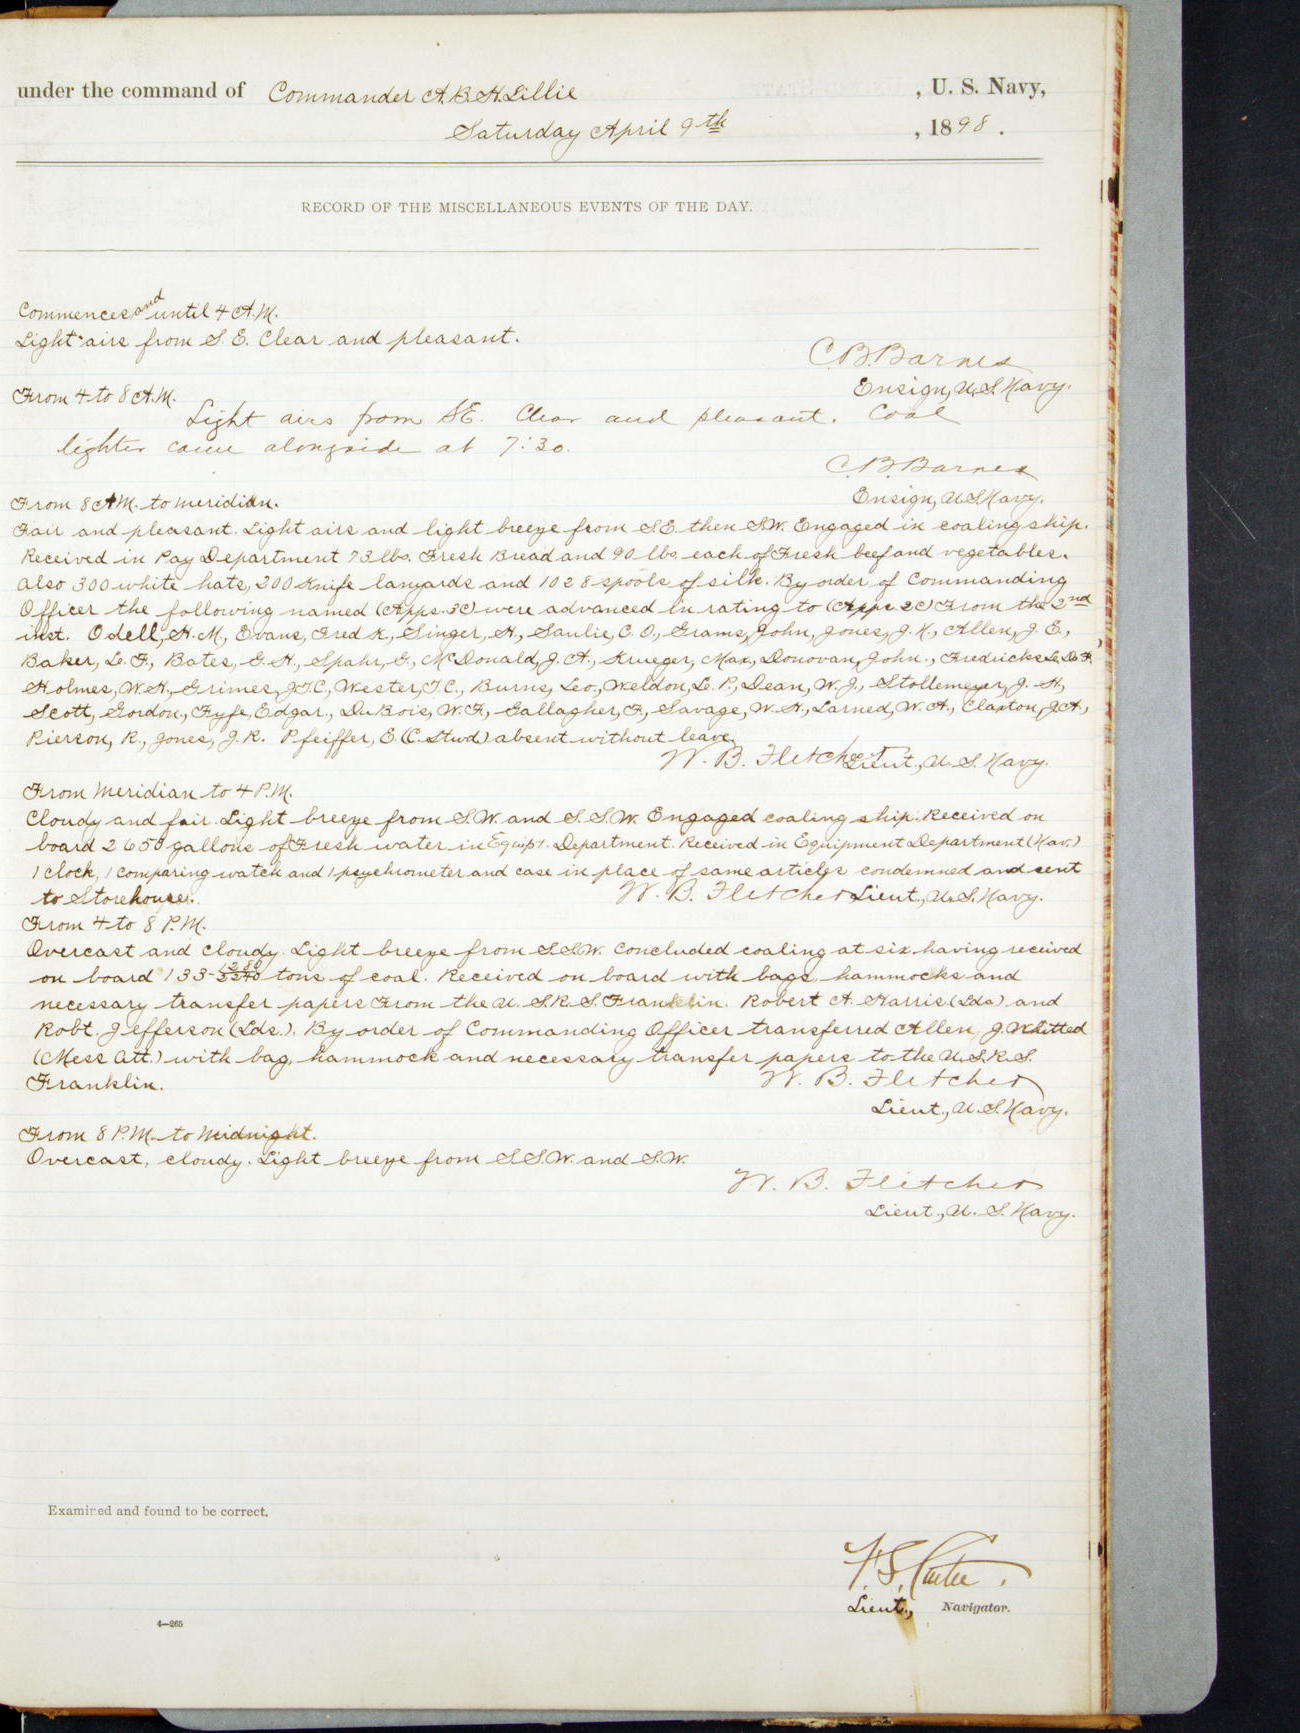 under the command of Commander A.B.H. Lillie , U. S. Navy,
Saturday April 9th , 1898 .
RECORD OF THE MISCELLANEOUS EVENTS OF THE DAY.
Commences and until 4 A.M.
Light airs from S. E. Clear and pleasant.
C.B. Barnes
Ensign, U.S. Navy.
From 4 to 8 A.M.
Light airs from SE. Clear and pleasant. Coal
lighter came alongside at 7:30.
C.B. Barnes
Ensign, U.S. Navy.
From 8 A.M. to meridian.
Fair and pleasant. Light airs and light breeze from S.E. then S.W. Engaged in coaling ship.
Received in Pay Department 73 lbs. Fresh Bread and 90 lbs. each of Fresh beef and vegetables.
also 300 white hats, 200 Knife lanyards and 1028 spools of silk. By order of Commanding
Officer the following named (Apps. 3C) were advanced in rating to (Apps 2C) From the 2nd
inst. Odell, H. M., Evans, Fred K., Singer, H., Saulie, C. O., Grams, John, Jones, J. K., Allen, J. E.,
Baker, L. F., Bates, G. H., Spahr, G., McDonald, J. A., Krueger, Max, Donovan, John., Fredricks, L. De F.,
Holmes, W. H., Grimes, J.T.C., Wester, T.C., Burns, Leo., Weldon, L. P., Dean, W. J., Stollemeyer, J. H.,
Scott, Gordon., Fyfe, Edgar., DuBois, W. F., Gallagher, F., Savage, W. H., Larned, W. A., Claxton, J. A.,
Pierson, R., Jones, J. R. Pfeiffer, E. (C. Stwd.) absent without leave.
W. B. Fletcher Lieut., U. S. Navy.
From Meridian to 4 P.M.
Cloudy and fair. Light breeze from S.W. and S.S.W. Engaged coaling ship. Received on
board 2650 gallons of Fresh water in Equipt. Department. Received in Equipment Department (Nav.)
1 clock, 1 comparing watch and 1 psychrometer and case in place of same articles condemned and sent
to Storehouse.
W. B. Fletcher Lieut., U.S. Navy.
From 4 to 8 P.M.
Overcast and cloudy. Light breeze from S.S.W. Concluded coaling at six having received
on board 133- 1280 tons of coal. Received on board with bags hammocks and
necessary transfer papers From the U. S. R. S. Franklin. Robert A. Harris (Lds) and
Robt. Jefferson (Lds.). By order of Commanding Officer transferred Allen, J. Whitted
(Mess Att.) with bag, hammock and necessary transfer papers to the U.S.R.S.
Franklin.
W. B. Fletcher
Lieut., U. S. Navy.
From 8 P.M. to Midnight.
Overcast, cloudy. Light breeze from S.S.W. and S.W.
W. B. Fletcher
Lieut., U. S. Navy.
Examined and found to be correct.
Lieut., Navigator.
4—265